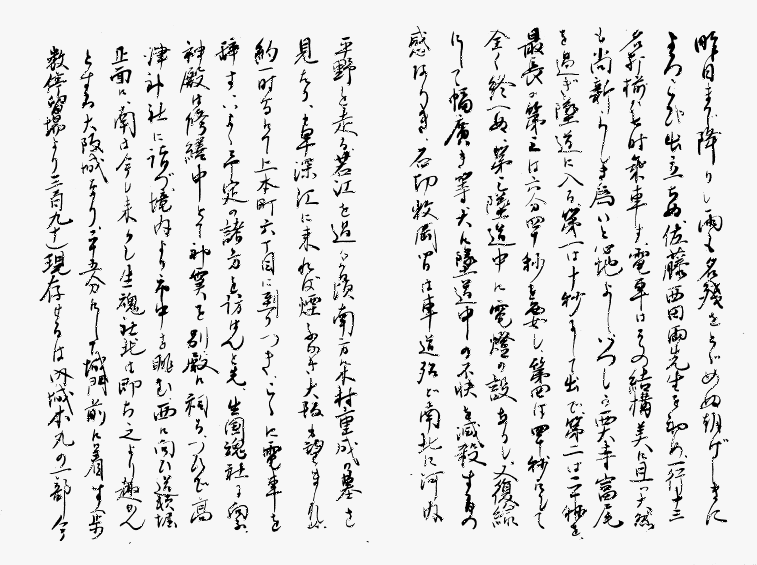 昨日まで降りし雨も名残をとゞめぬ朝げしきに
よろこび出立ちぬ佐藤西田両先生を初め一行十三
名打揃ひ七時乗車す電車はその結構美に且つ
も尚新らしき為いと心地よしいつしか西大寺富尾
を過ぎ隧道に入る第一は十秒にして出で第二は二十秒を
最長の第三は六分四十秒を要し第四は四十秒にして
全く終へぬ第三隧道中に電燈の設あるし又複線
にして幅廣き等大に隧道中の不快を減殺するの
感ありき、石切牧岡間は車道殆ど南北に河内
平野を走る若江を過る頃南方木村重成の墓さ
見ゆ、車深江に来れば煙ふかき大阪も望まれ
約一時間にして上本町六丁目に到りつきぬこゝに電車を
辞すいよく予定の諸方を訪はんと先生國魂社に
神殿は修繕中とて神実を別殿に祠る、ついで高
津神社に詣づ境内より市中を眺む西に向ひ道頓堀
正面に、南は今し来りし生魂社北は即ち之より趣かん
とする大阪城なり十五分にして城門前に着す此歩
数停留場より三百九十現存せるは内城本丸の一部今